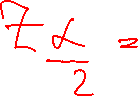 Z α/2 =